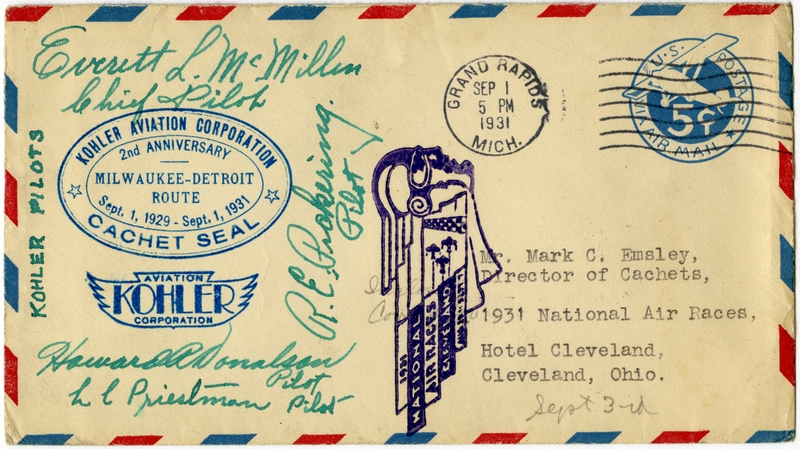 Everett L. McMillin
Chief Pilot
KOHLER PILOTS
KOHLER AVIATION CORPORATION
2nd ANNIVERSARY
MILWAUKEE-DETROIT
ROUTE
Sept. 1, 1929 - Sept. 1, 1931
CACHET SEAL
AVIATION
KOHLER
CORPORATION
R.E. Pickering.
Pilot
Howard R Donalson
Pilot
L C Priestman
Pilot
GRAND RAPIDS
SEP 1
5 PM
1931
MICH.
U.S. POSTAGE
5¢
VIA AIR MAIL
1931
NATIONAL
AIR RACES
CLEVELAND
Mr. Mark C. Emsley,
Director of Cachets,
1931 National Air Races,
Hotel Cleveland,
Cleveland, Ohio.
Sept 3rd